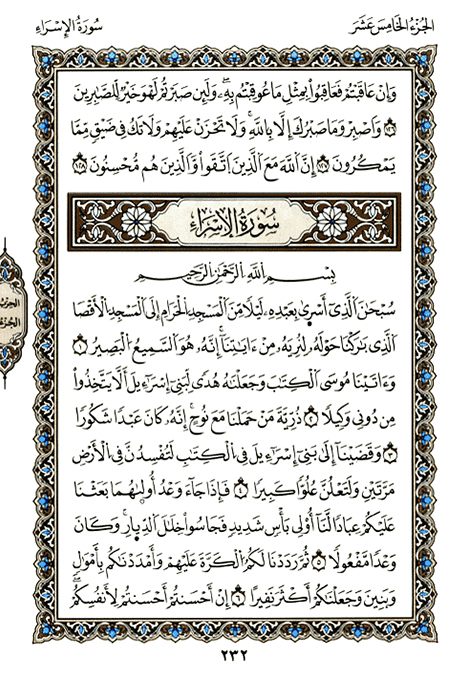 الجزء الخامس عشر
سورة الإسراء
وَإِنْ عَاقَبْتُمْ فَعَاقِبُوا۟ بِمِثْلِ مَا عُوقِبْتُم بِهِۦ ۖ وَلَئِن صَبَرْتُمْ لَهُوَ خَيْرٌ لِّلصَّٰبِرِينَ
١٢٦ وَٱصْبِرْ وَمَا صَبْرُكَ إِلَّا بِٱللَّهِ ۚ وَلَا تَحْزَنْ عَلَيْهِمْ وَلَا تَكُ فِى ضَيْقٍ مِّمَّا
يَمْكُرُونَ ١٢٧ إِنَّ ٱللَّهَ مَعَ ٱلَّذِينَ ٱتَّقَوا۟ وَّٱلَّذِينَ هُم مُّحْسِنُونَ ١٢٨
سورة الإسراء
بِسْمِ ٱللَّهِ ٱلرَّحْمَٰنِ ٱلرَّحِيمِ
سُبْحَٰنَ ٱلَّذِىٓ أَسْرَىٰ بِعَبْدِهِۦ لَيْلًا مِّنَ ٱلْمَسْجِدِ ٱلْحَرَامِ إِلَى ٱلْمَسْجِدِ ٱلْأَقْصَا
ٱلَّذِى بَٰرَكْنَا حَوْلَهُۥ لِنُرِيَهُۥ مِنْ ءَايَٰتِنَآ ۚ إِنَّهُۥ هُوَ ٱلسَّمِيعُ ٱلْبَصِيرُ ١
وَءَاتَيْنَا مُوسَى ٱلْكِتَٰبَ وَجَعَلْنَٰهُ هُدًى لِّبَنِىٓ إِسْرَٰٓءِيلَ أَلَّا تَتَّخِذُوا۟
مِن دُونِى وَكِيلًا ٢ ذُرِّيَّةَ مَنْ حَمَلْنَا مَعَ نُوحٍ ۚ إِنَّهُۥ كَانَ عَبْدًا شَكُورًا
٣ وَقَضَيْنَآ إِلَىٰ بَنِىٓ إِسْرَٰٓءِيلَ فِى ٱلْكِتَٰبِ لَتُفْسِدُنَّ فِى ٱلْأَرْضِ
مَرَّتَيْنِ وَلَتَعْلُنَّ عُلُوًّا كَبِيرًا ٤ فَإِذَا جَآءَ وَعْدُ أُولَىٰهُمَا بَعَثْنَا
عَلَيْكُمْ عِبَادًا لَّنَآ أُو۟لِى بَأْسٍ شَدِيدٍ فَجَاسُوا۟ خِلَٰلَ ٱلدِّيَارِ ۚ وَكَانَ
وَعْدًا مَّفْعُولًا ٥ ثُمَّ رَدَدْنَا لَكُمُ ٱلْكَرَّةَ عَلَيْهِمْ وَأَمْدَدْنَٰكُم بِأَمْوَٰلٍ
وَبَنِينَ وَجَعَلْنَٰكُمْ أَكْثَرَ نَفِيرًا ٦ إِنْ أَحْسَنتُمْ أَحْسَنتُمْ لِأَنفُسِكُمْ ۖ
٢٣٢